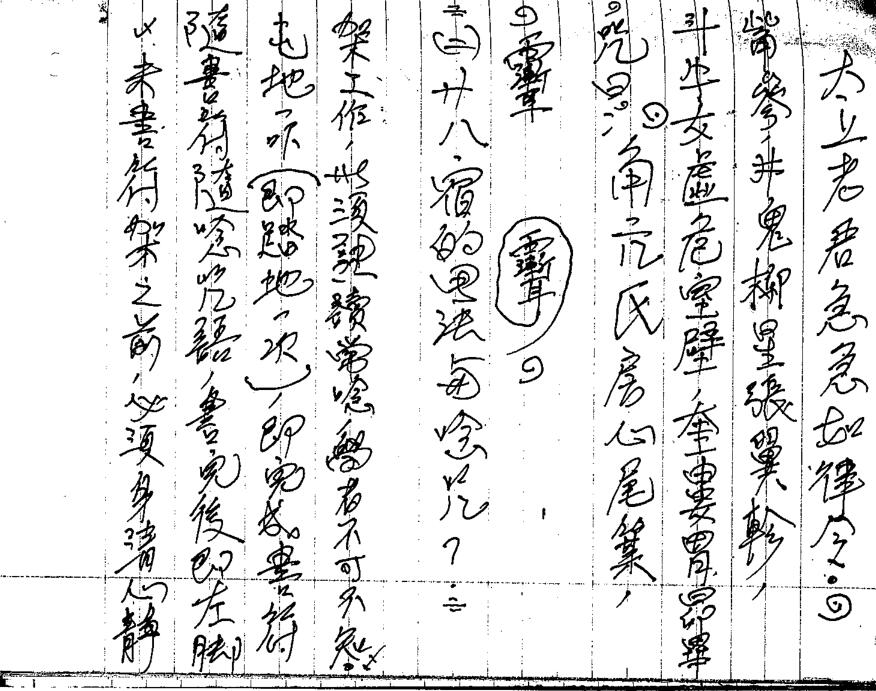 未書符架之前，必須身清心靜
隨書符隨唸咒語，書完後即左脚
地一次(即踏地一次)，即完成書符
架工作，此須連續常唸，學者不可不知。
(二)廿八宿的法每唸咒？
咒曰：角亢氐房心尾箕，
斗牛女虛危室壁，奎婁胃昴畢
觜參，井鬼柳星張翼軫，
太上老君急急如律令。